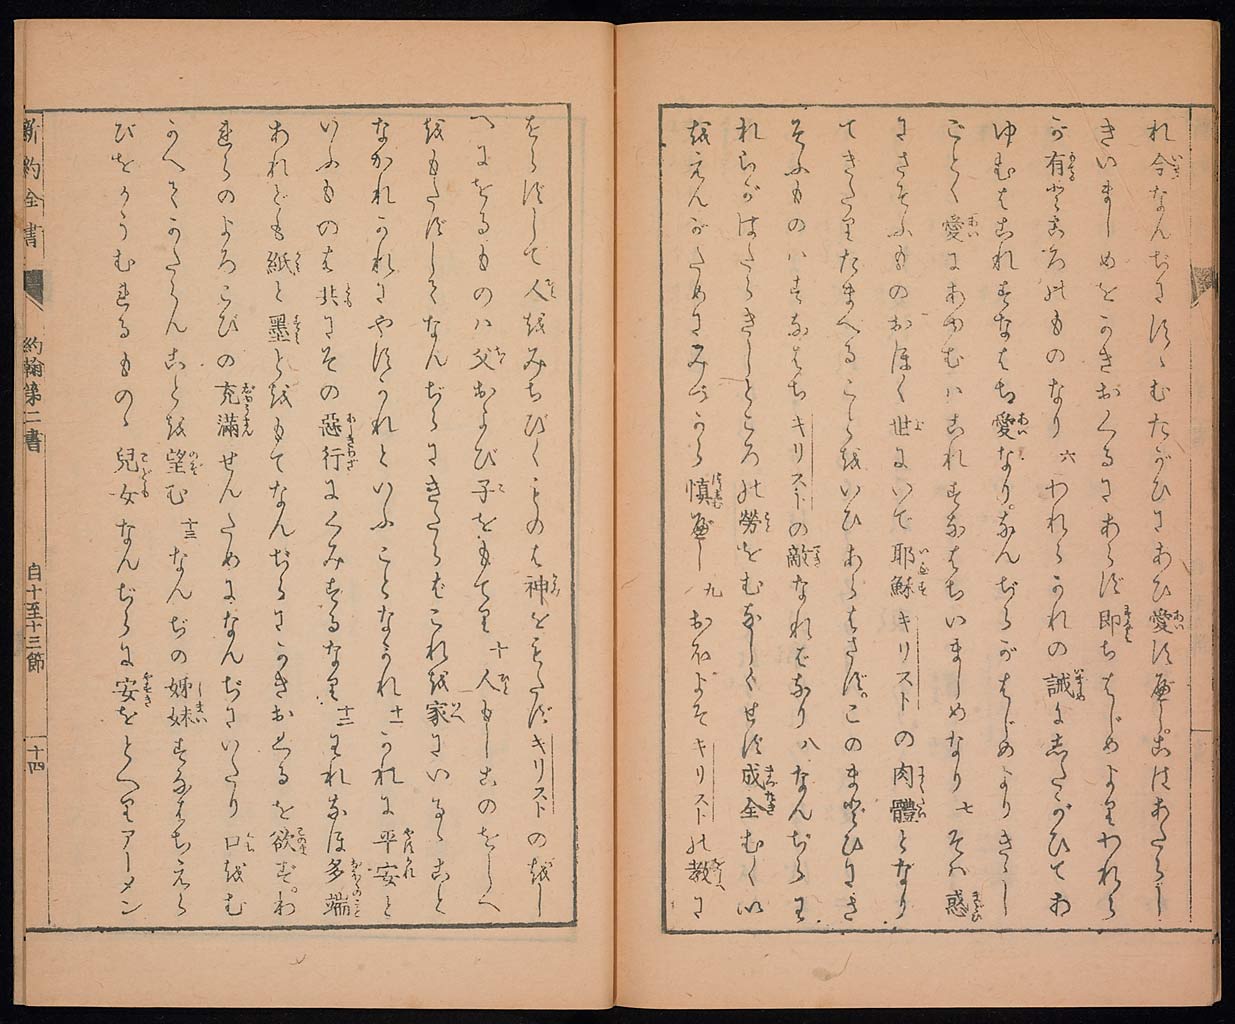 れ今なんぢにすゝむたがひにあひ愛すべしこはあたらし
きいましめをかきおくるにあらず即ちはじめよりわれら
が有ところのものなり 六 われらかれの誡にしたがひてあ
ゆむはこれすなはち愛なりなんぢらがはじめよりきゝし
ごとく愛にあゆむはこれすなはちいましめなり 七 そは惑
にさそふものおほく世にいで耶穌キリストの肉體となり
てきたりたまへることをいひあらはさずこのまどひにさ
そふものハすなはちキリストの敵なれバなり 八 なんぢらわ
れらがはたらきしところの勞をむなしくせず成全むくい
をえんがためにみづから愼べし 九 おほよそキリストの教に
をらずして人をみちびくものは神をもたずキリストのをし
へにをるものハ父および子をもてり 十 人もしこのをしへ
をもたずしてなんぢらにきたらばこれを家にいるゝこと
なかれかれにやすかれといふことなかれ 十一 かれに平安と
いふものは共にその惡行にくみするなり 十二 われなほ多端
あれども紙と墨とをもてなんぢらにかきおくるを欲ずわ
れらのよろこびの充滿せんためになんぢにいたり口をむ
かへてかたらんことを望む 十三 なんぢの姊妹すなはちえら
びをかうむれるものゝ兒女なんぢらに安をとへりアーメン
新約全書
約翰第二書
自十至十三節
十四